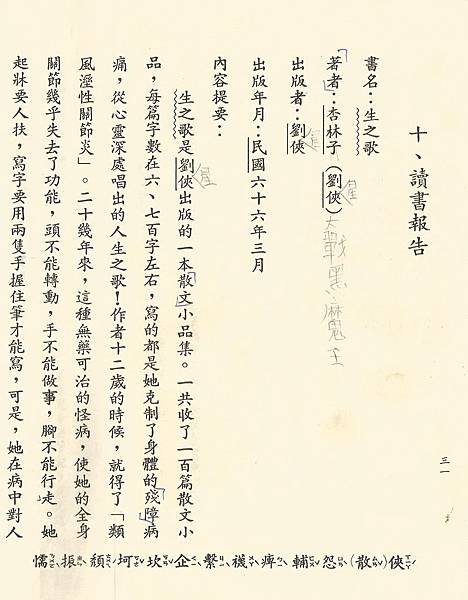 十、讀書報告
書名：生之歌
著者：杏林子（劉俠）
大戰黑魔王
出版者：劉俠
出版年月：民國六十六年三月
內容提要：
生之歌是劉俠出版的一本散文小品集。一共收了一百篇散文小
品，每篇字數在六、七百字左右，寫的都是她克制了身體的殘障病
痛，從心靈深處唱出的人生之歌！作者十二歲的時候，就得了「類
風溼性關節炎」。二十幾年來，這種無藥可治的怪病，使她的全身
關節幾乎失去了功能，頭不能轉動，手不能做事，腳不能行走。她
起牀要人扶，寫字要用兩隻手握住筆才能寫，可是，她在病中對人
三一
俠（散）怨輔痺襪繫企坎坷頹振懦